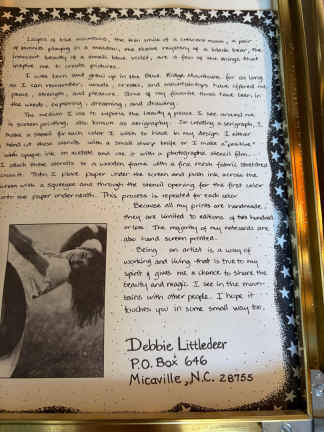 Images of blue mountains, the thin smile of a crescent moon, a pair
of bunnies playing in a meadow, the shared mystery of a black bear, the
innocent beauty of a small blue violet, are a few of the things that
inspire me to create pictures.
I was born and grew up in the Blue Ridge Mountains. For as long
as I can remember, woods, creeks, and mountaintops have offered me
peace, strength, and pleasure. Some of my favorite times have been in
the woods, exploring, dreaming, and drawing.
The medium I use to express the beauty & peace I see around me
is screen printing, also known as serigraphy. In creating a serigraph, I
make a stencil for each color I wish to have in my design. I either
hand cut these stencils with a small sharp knife or I make a "positive"
with opaque ink on acetate and use it with a photographic stencil film.
I attach these stencils to a wooden frame with a fine mesh fabric stretched
across it. Then I place paper under the screen and push ink across the
screen with a squeegee and through the stencil opening for the first color
onto the paper underneath. This process is repeated for each color.
Because all my prints are handmade,
they are limited to editions of two hundred
or less. The majority of my notecards are
also hand screen printed.
Being an artist is a way of
working and living that is true to my
spirit & gives me a chance to share the
beauty and magic I see in the moun-
tains with other people. I hope it
touches you in some small way too.
Debbie Littledeer
P.O. Box 646
Micaville, N.C. 28755